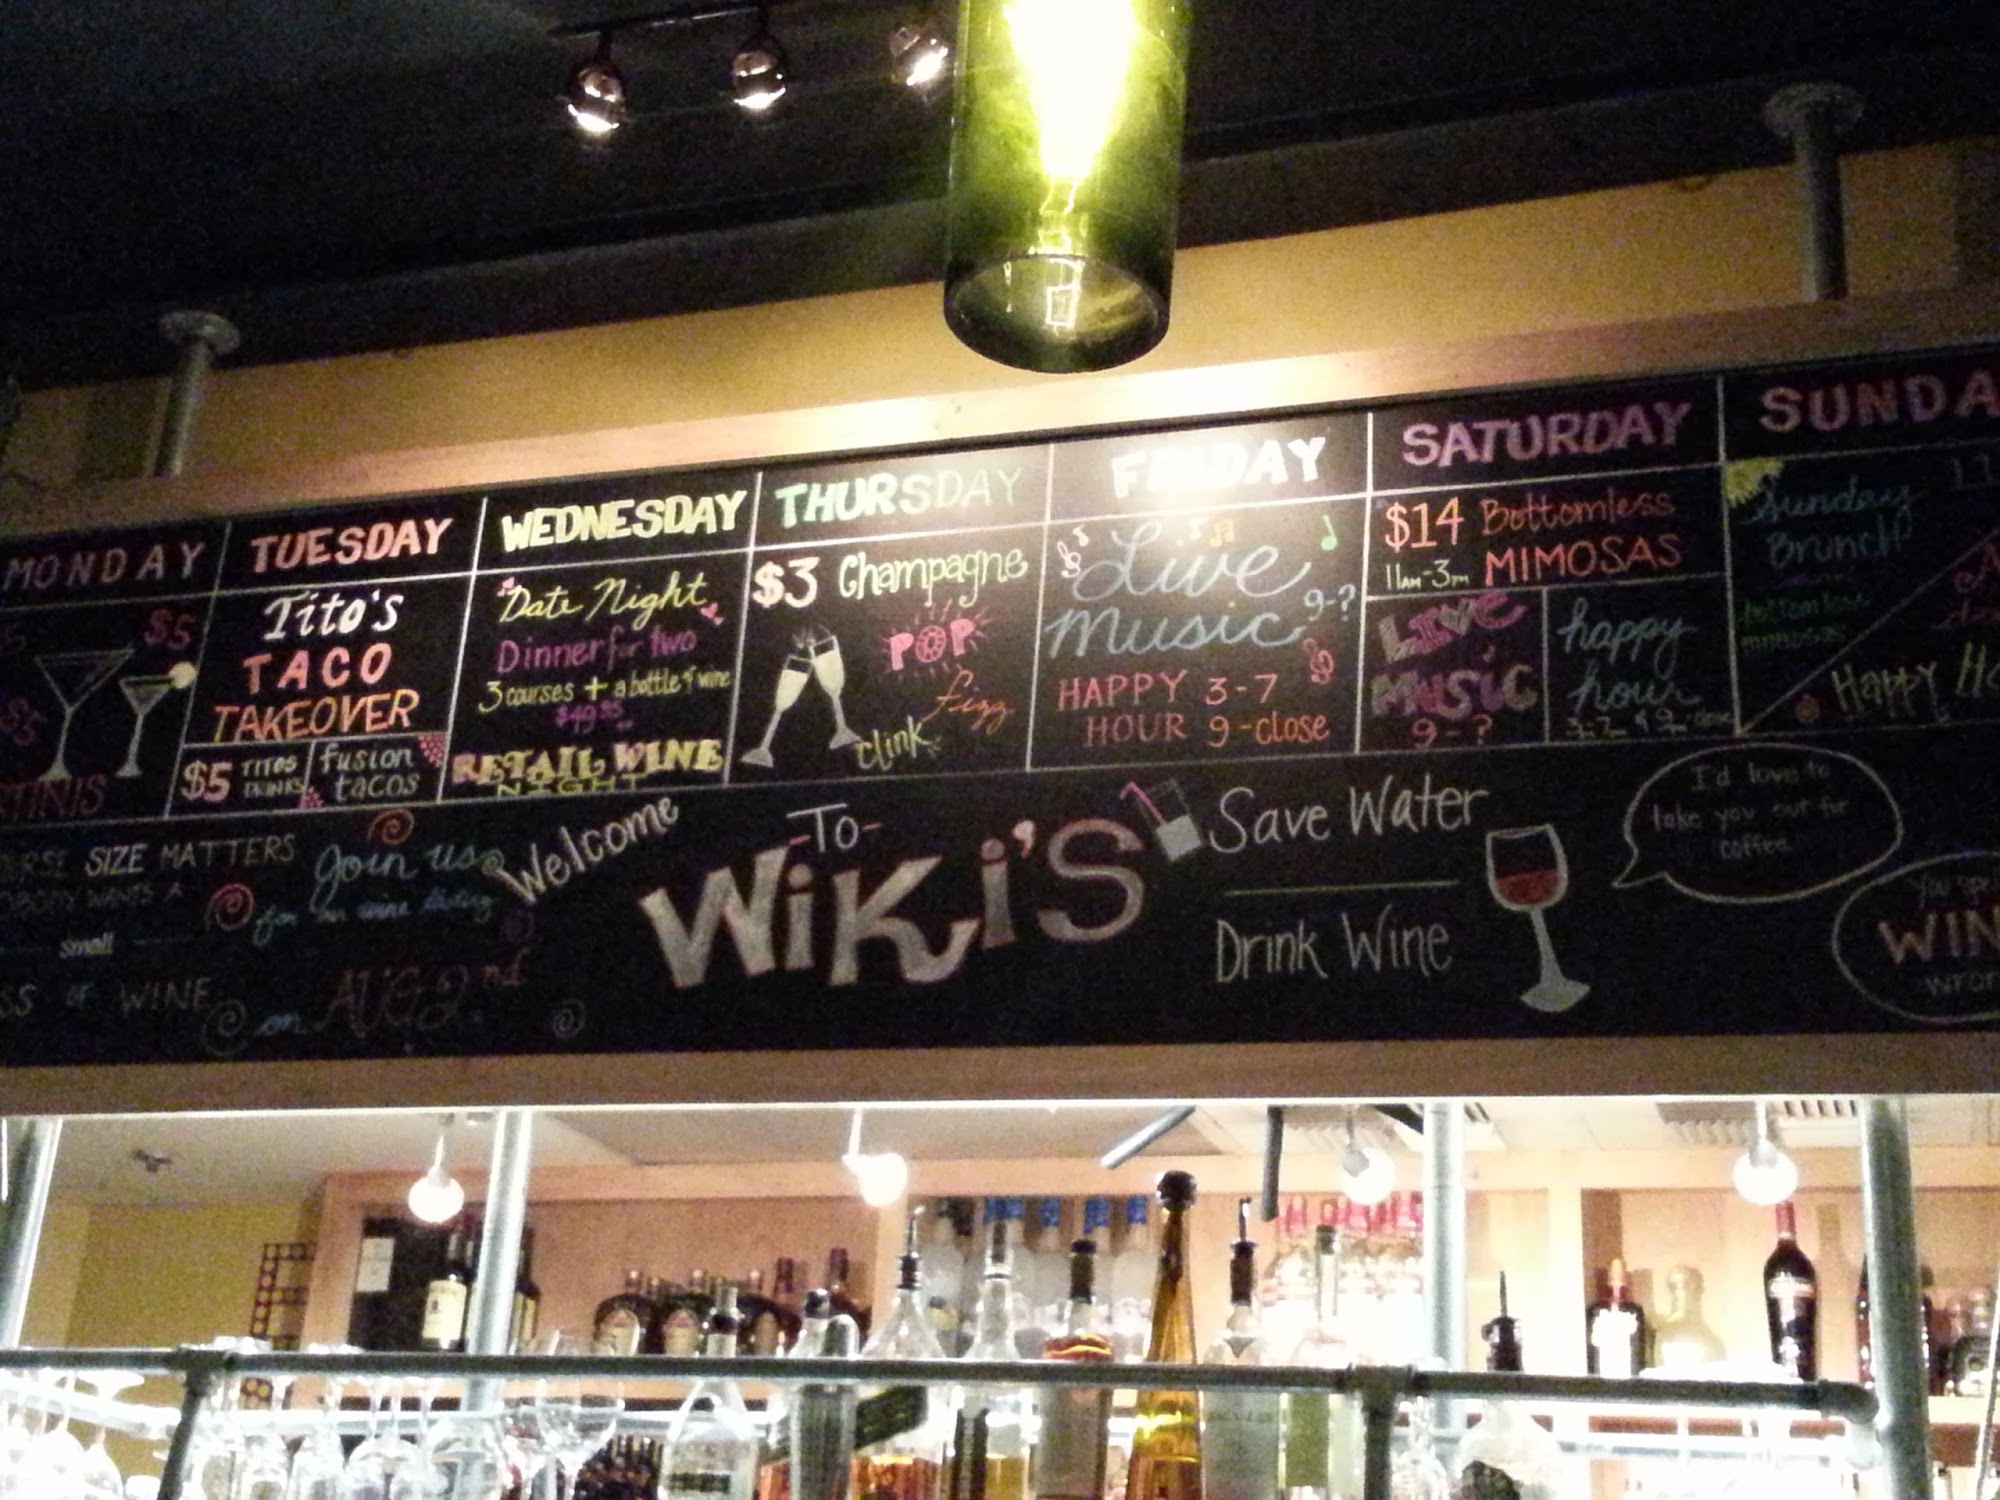 MONDAY
$5
$5
TUESDAY
Tito's
TACO
TAKEOVER
$5 TITOS
DRINKS
fusion
tacos
WEDNESDAY
Date Night
Dinner for two
3 courses + a bottle of wine
$49.95
RETAIL WINE
NIGHT
THURSDAY
$3 Champagne
POP
fizz
clink
FRIDAY
Live
Music 9-?
HAPPY 3-7
HOUR 9-close
SATURDAY
$14 Bottomless
11AM-3PM MIMOSAS
LIVE
MUSIC
9-?
happy
hour
3-7 & 9-close
SUNDA
Sunday
Brunch
bottomless
mimosas
Happy Ho
SIZE MATTERS
NOBODY WANTS A
small
SS OF WINE
Join us
for our wine
on AUG 2nd
Welcome
-To-
WiKi'S
Save Water
Drink Wine
I'd love to
take you out for
coffee
WIN